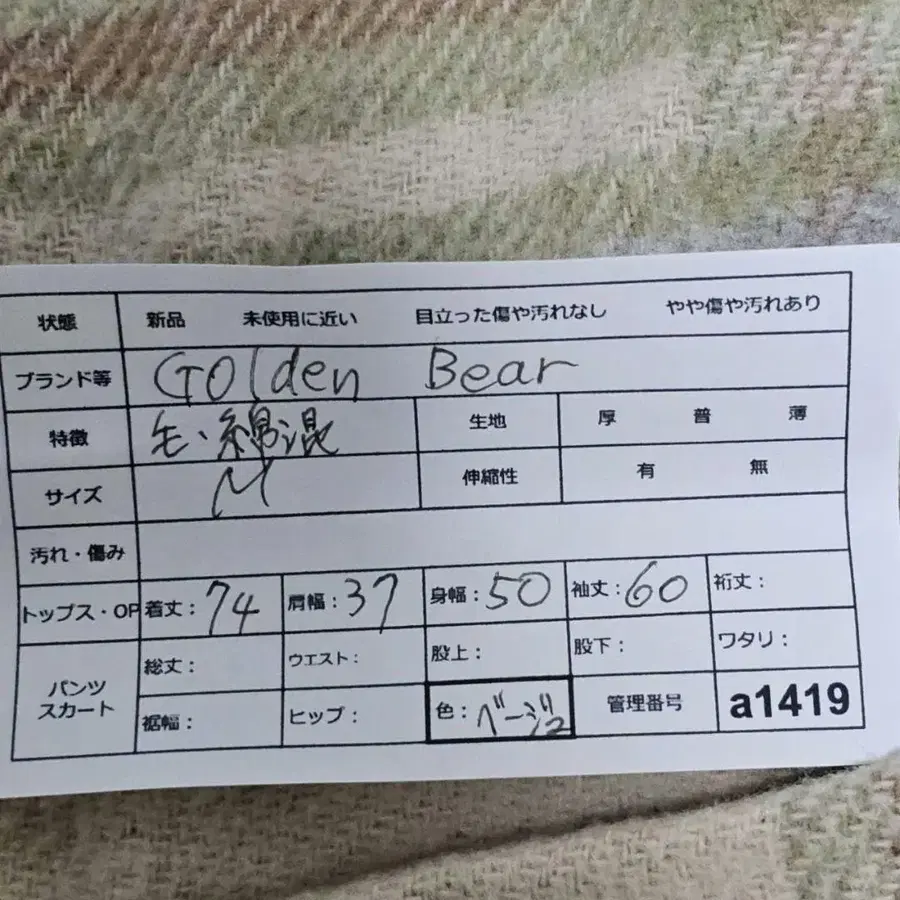 状態 新品 未使用に近い 目立った傷や汚れなし やや傷や汚れあり
ブランド等 Golden Bear
特徴 毛、綿混 生地 厚 普 薄
サイズ M 伸縮性 有 無
汚れ・傷み
トップス・OP 着丈：74 肩幅：37 身幅：50 袖丈：60 裄丈：
パンツ スカート 総丈： ウエスト： 股上： 股下： ワタリ：
裾幅： ヒップ： 色：ベージュ 管理番号 a1419